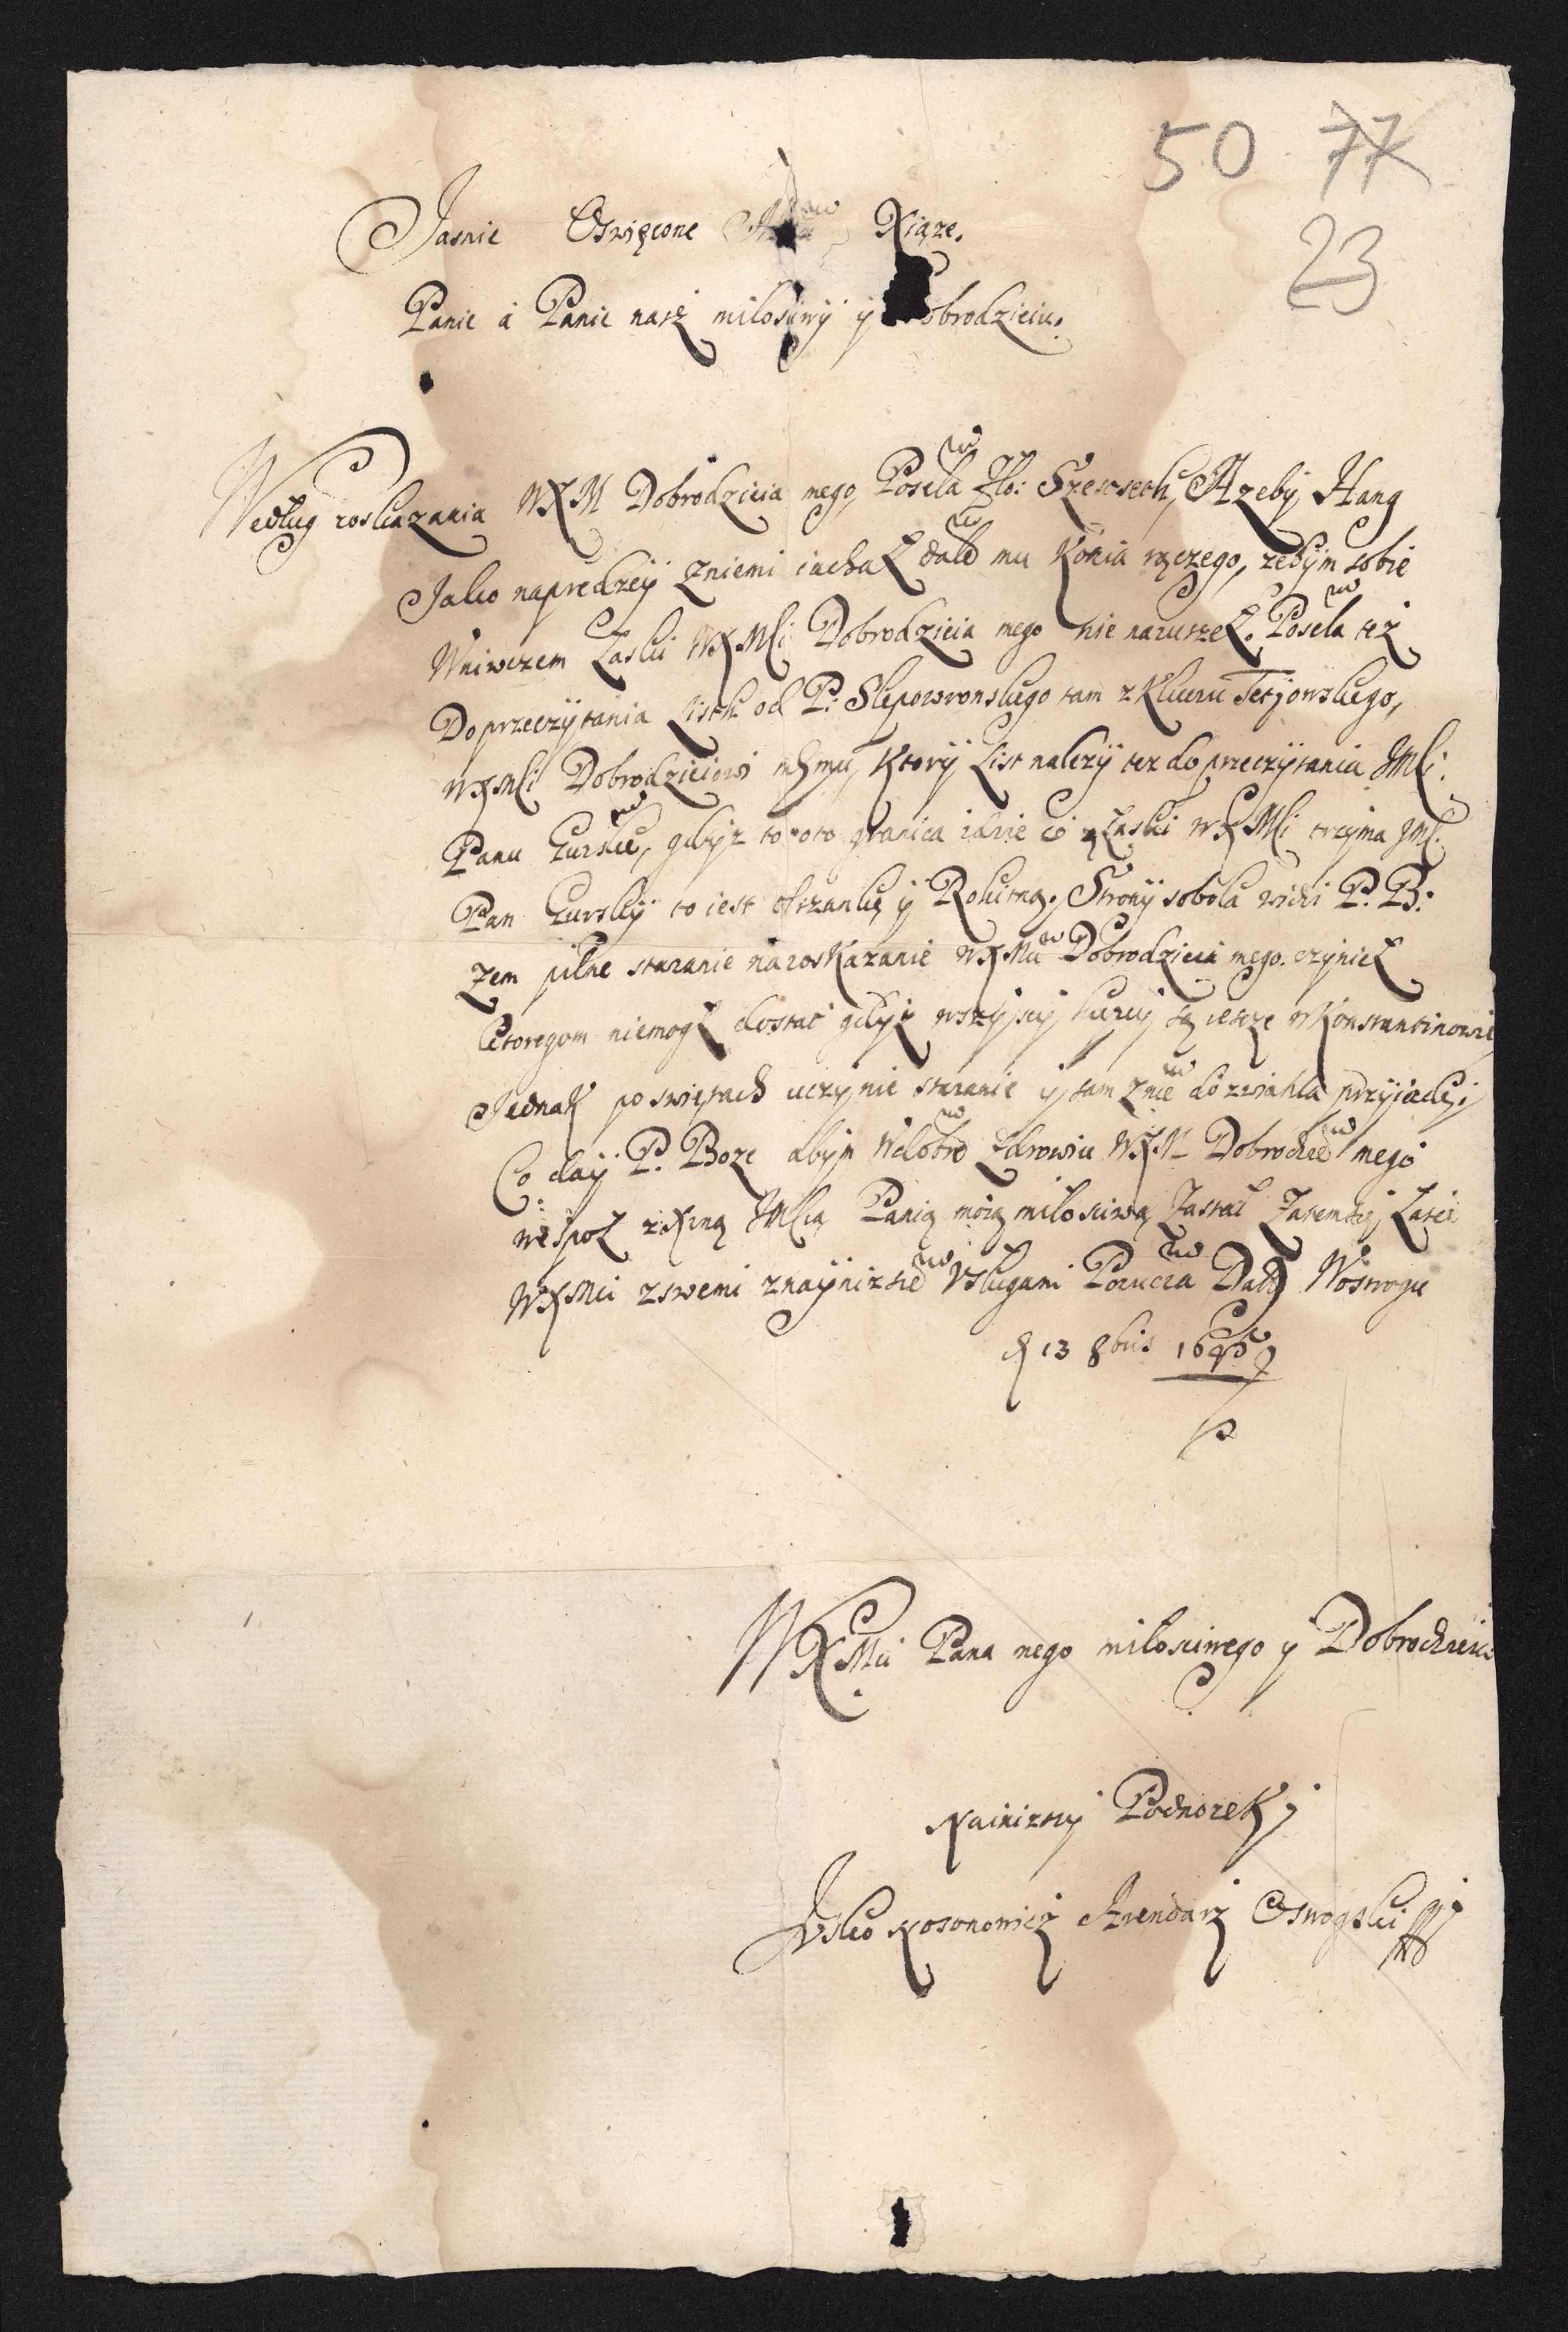 50 77
23
Jasnie Oswięcone Xiąze.
Panie á Panie nasz miłosciwÿ ÿ obrodzieiu.
Według roskazania WXM Dobrodzieia mego, Posela Zło: Szescseth, Azebÿ Hang
Jako napredzeÿ Zniemi iachaŁ dale mu Konia rączego, zebÿm sobie
Wniwczem Łaski WXMści Dobrodzieia mego nie naruszeŁ. Posela też
Do przeczÿtania Listh od P: Slepowronskiego tam z Kluczu Tetjowskiego,
WXMści Dobrodzieiowi memu, Ktorÿ List nalezÿ tez do przeczÿtania JMści:
Panu Gurskie, gdÿz to oto granica idzie co z Łaski WXMści trzÿma JMść
Pan Gurskÿ to iest olszankę ÿ Rokitną. Stronÿ sobola widzi P. B:
Zem pilne staranie na rosKazanie WXMci Dobrodzieia mego czÿnieŁ
Ktoregom niemogŁ dostać gdÿż wszÿscÿ kupcÿ są iescze w Konstantinowie
JednaK po swiętach uczÿnie staranie ÿ sam Znie do zwiahla przÿiadę.
Co daÿ P. Boze abÿm Wdobre Zdrowiu WXM Dobrodzie mego
wespoŁ z Xzną JMścią Panią moią miłosciwą Zastał Zatemsię Łasce
WXMci zswemi znaÿnizsze Vsługami Porucza Dat Wostrogu
d 13 8bris 1645
WXMci Pana mego miłosciwego ÿ Dobrodzieia
Nainizszÿ PodnozeK
Jsko Arendarz Ostrogski